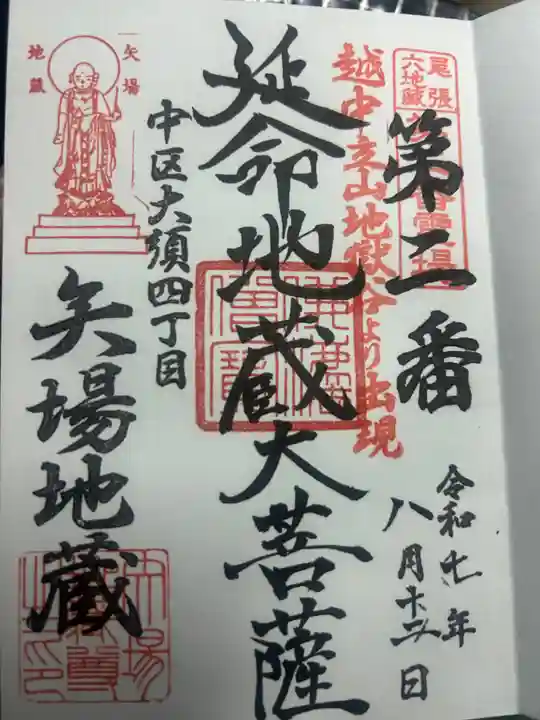 尾張
六地蔵
第二番
越中立山地獄谷より出現
令和七年
八月十二日
延命地蔵大菩薩
中区大須四丁目
矢場
地蔵
矢場地蔵